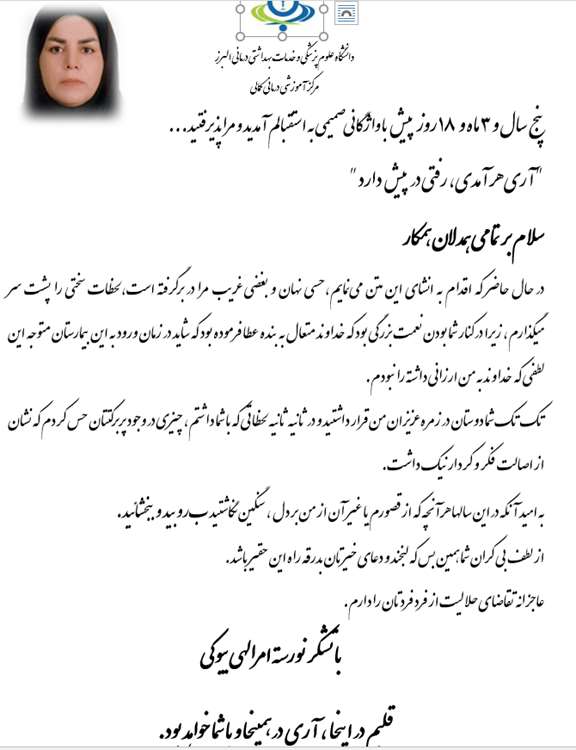 دانشگاه علوم پزشکی و خدمات بهداشتی درمانی البرز
مرکز آموزشی درمانی کمالی
پنج سال و ۳ ماه و ۱۸ روز پیش با واژگانی صمیمی به استقبالم آمدید و مرا پذیرفتید...
"آری هر آمدی، رفتی در پیش دارد"
سلام بر تمامی همدلان همکار
در حال حاضر که اقدام به انشای این متن می‌نمایم، حسی نهان و بغضی غریب مرا در برگرفته است، لحظات سختی را پشت سر
میگذارم، زیرا در کنار شما بودن نعمت بزرگی بود که خداوند متعال به بنده عطا فرموده بود که شاید در زمان ورود به این بیمارستان متوجه این
لطفی که خداوند به من ارزانی داشته را نبودم.
تک تک شما دوستان در زمره عزیزان من قرار داشتید و در ثانیه ثانیه لحظاتی که با شما داشتم، چیزی در وجود پربرکتتان حس کردم که نشان
از اصالت فکر و کردار نیک داشت.
به امید آنکه در این سالها هر آنچه که از قصورم یا غیر آن از من بر دل، سنگین نگاشتید بروبید و ببخشائید.
از لطف بی کران شما همین بس که لبخند و دعای خیرتان بدرقه راه این حقیر باشد.
عاجزانه تقاضای حلالیت از فرد فردتان را دارم.
با تشکر نورسته امرالهی بیوکی
قلبم در اینجا، آری در همینجا و با شما خواهد بود.